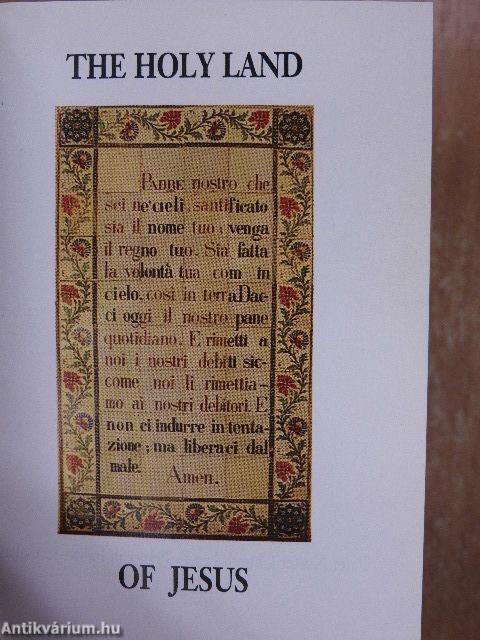 THE HOLY LAND
PADRE nostro che
sei ne'cieli, santificato
sia il nome tuo; venga
il regno tuo. Sia fatta
la volontà tua com in
cielo, così in terra Dac-
ci oggi il nostro pane
quotidiano. E rimetti a
noi i nostri debiti sic-
come noi li rimettia-
mo ai nostri debitori. E
non ci indurre in tenta-
zione; ma liberaci dal
male.
Amen.
OF JESUS
Antikvárium.hu